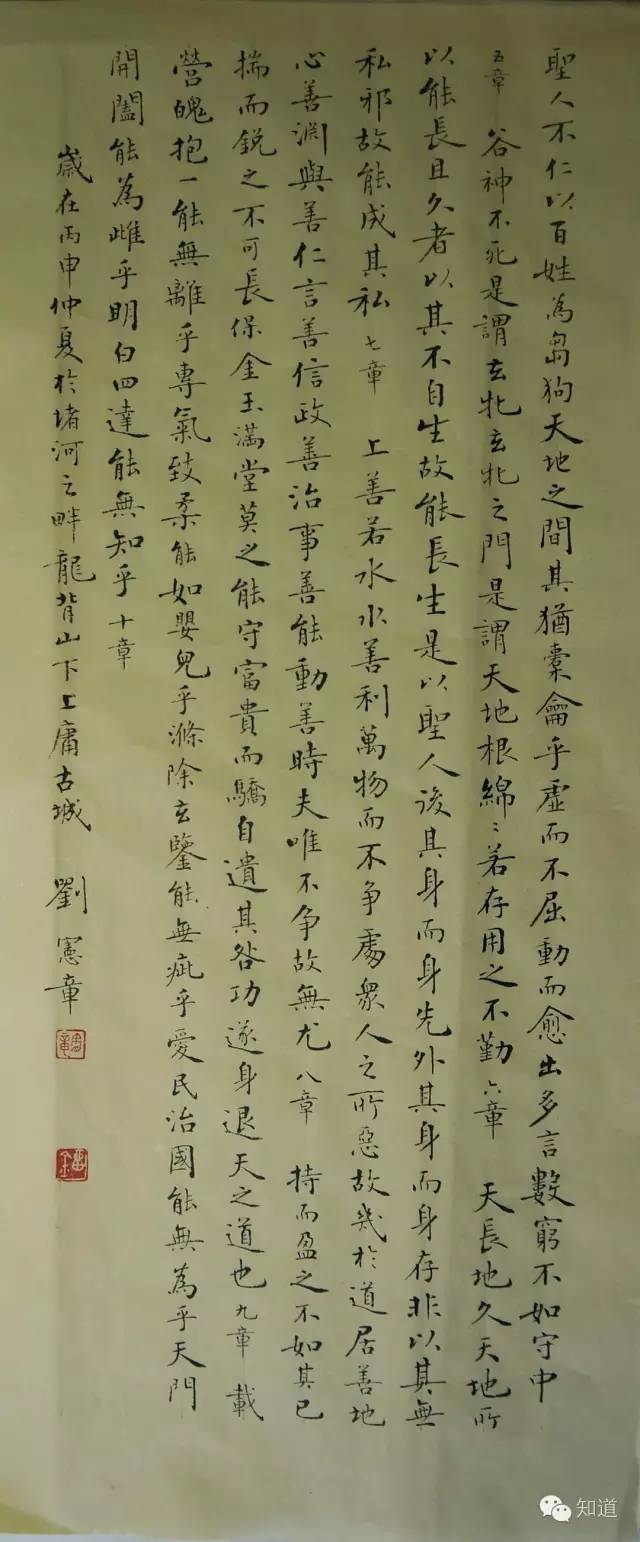 聖人不仁以百姓為芻狗天地之間其猶橐龠乎虛而不屈動而愈出多言數窮不如守中
五章 谷神不死是謂玄牝玄牝之門是謂天地根綿〻若存用之不勤 六章 天長地久天地所
以能長且久者以其不自生故能長生是以聖人後其身而身先外其身而身存非以其無
私邪故能成其私 七章 上善若水水善利萬物而不爭處衆人之所惡故幾於道居善地
心善淵與善仁言善信政善治事善能動善時夫唯不爭故無尤 八章 持而盈之不如其已
揣而銳之不可長保金玉滿堂莫之能守富貴而驕自遺其咎功遂身退天之道也 九章 載
營魄抱一能無離乎專氣致柔能如嬰兒乎滌除玄鑒能無疵乎愛民治國能無為乎天門
開闔能為雌乎明白四達能無知乎 十章
歲在丙申仲夏於堵河之畔龍背山下上庸古城 劉憲章
知道